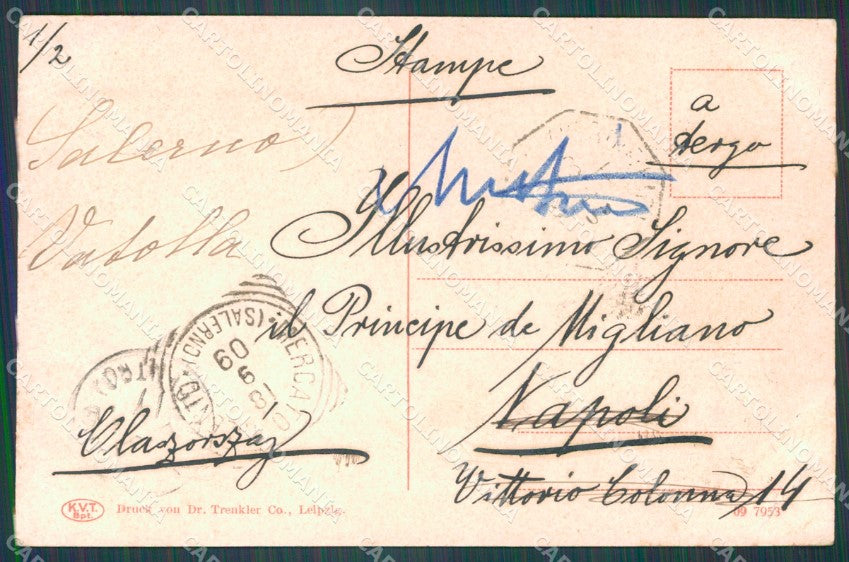 1/2
Stampe
a
tergo
Salerno)
Vatolla
Illustrissimo Signore
il Principe de Migliano
Napoli
Vittorio Colonna 14
MERCATO
(SALERNO)
18 9 09
Olaszország
K.V.T.
Bpt.
Druck von Dr. Trenkler Co., Leipzig.
09 7953
CARTOLINOMANIA